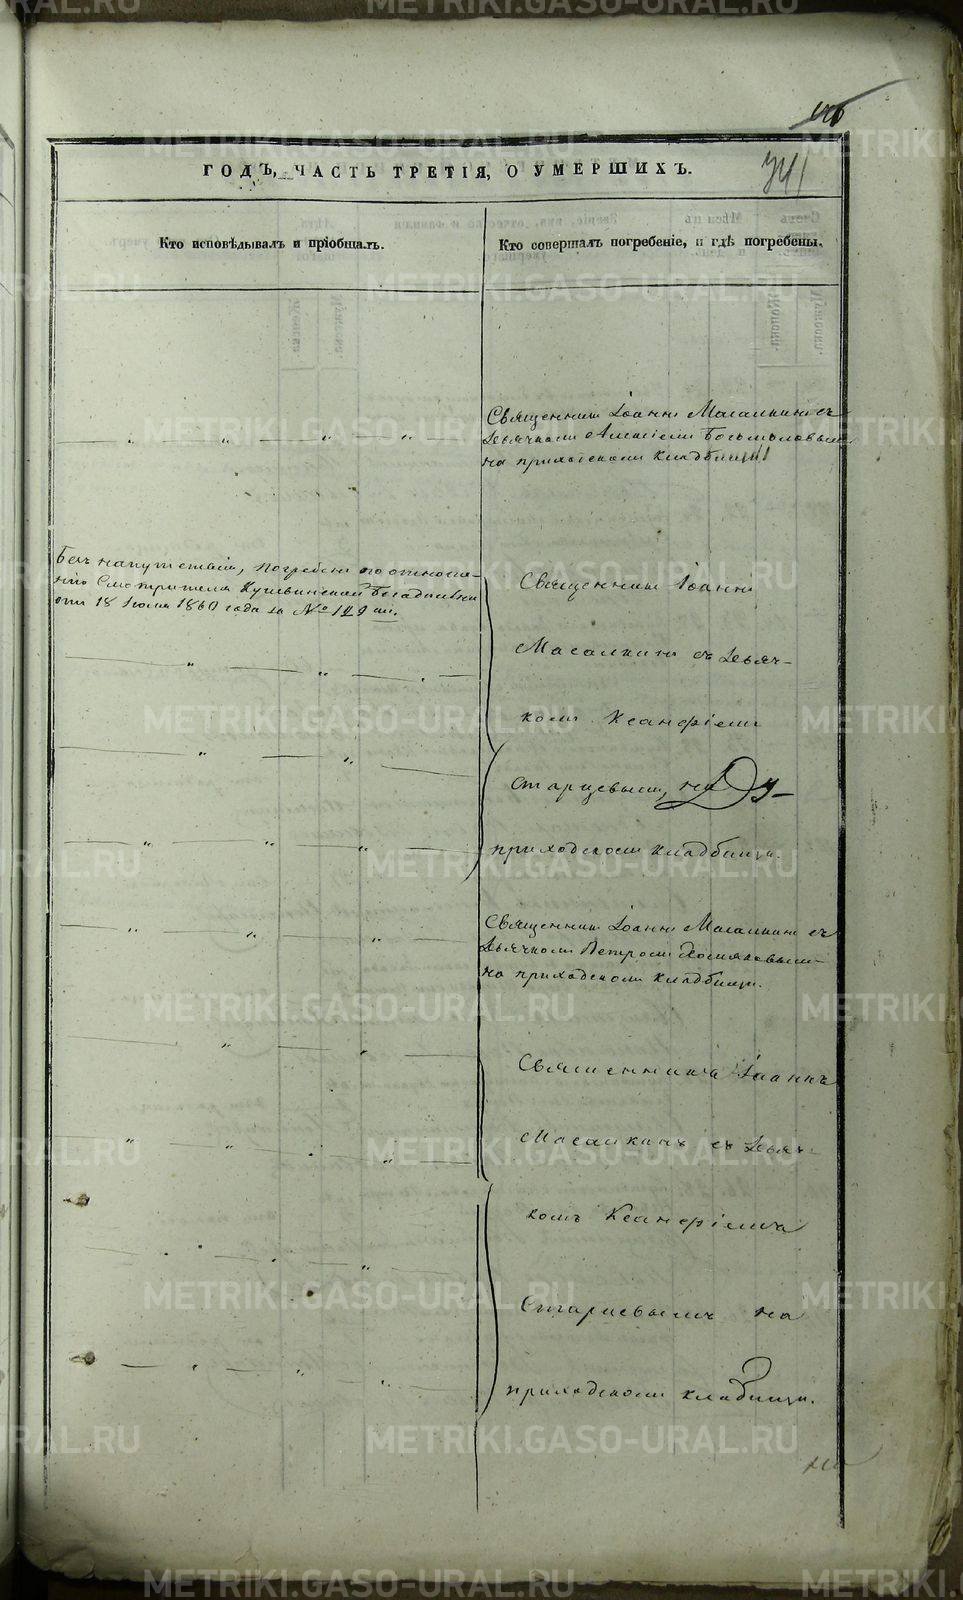 146
341
ГОДЪ, ЧАСТЬ ТРЕТІЯ, О УМЕРШИХЪ.
Кто исповѣдывалъ и пріобщалъ.
Кто совершалъ погребеніе, и гдѣ погребены.
Священникъ Іоаннъ Масалкинъ съ
дьячкомъ Алексіемъ Богомоловымъ
на приходскомъ кладбищѣ
Безъ напутствія, погребенъ по отноше-
нію Смотрителя Кушвинской Богадѣльни
отъ 18 Іюля 1860 года за № 129 м.
Священникъ Іоаннъ
Масалкинъ съ дьяч-
комъ Ксанфіемъ
Старцевымъ, на
приходскомъ кладбищѣ.
Священникъ Іоаннъ Масалкинъ съ
дьячкомъ Петромъ Хомяковымъ
на приходскомъ кладбищѣ.
Священникъ Іоаннъ
Масалкинъ съ дьяч-
комъ Ксанфіемъ
Старцевымъ на
приходскомъ кладбищѣ.
METRIKI.GASO-URAL.RU